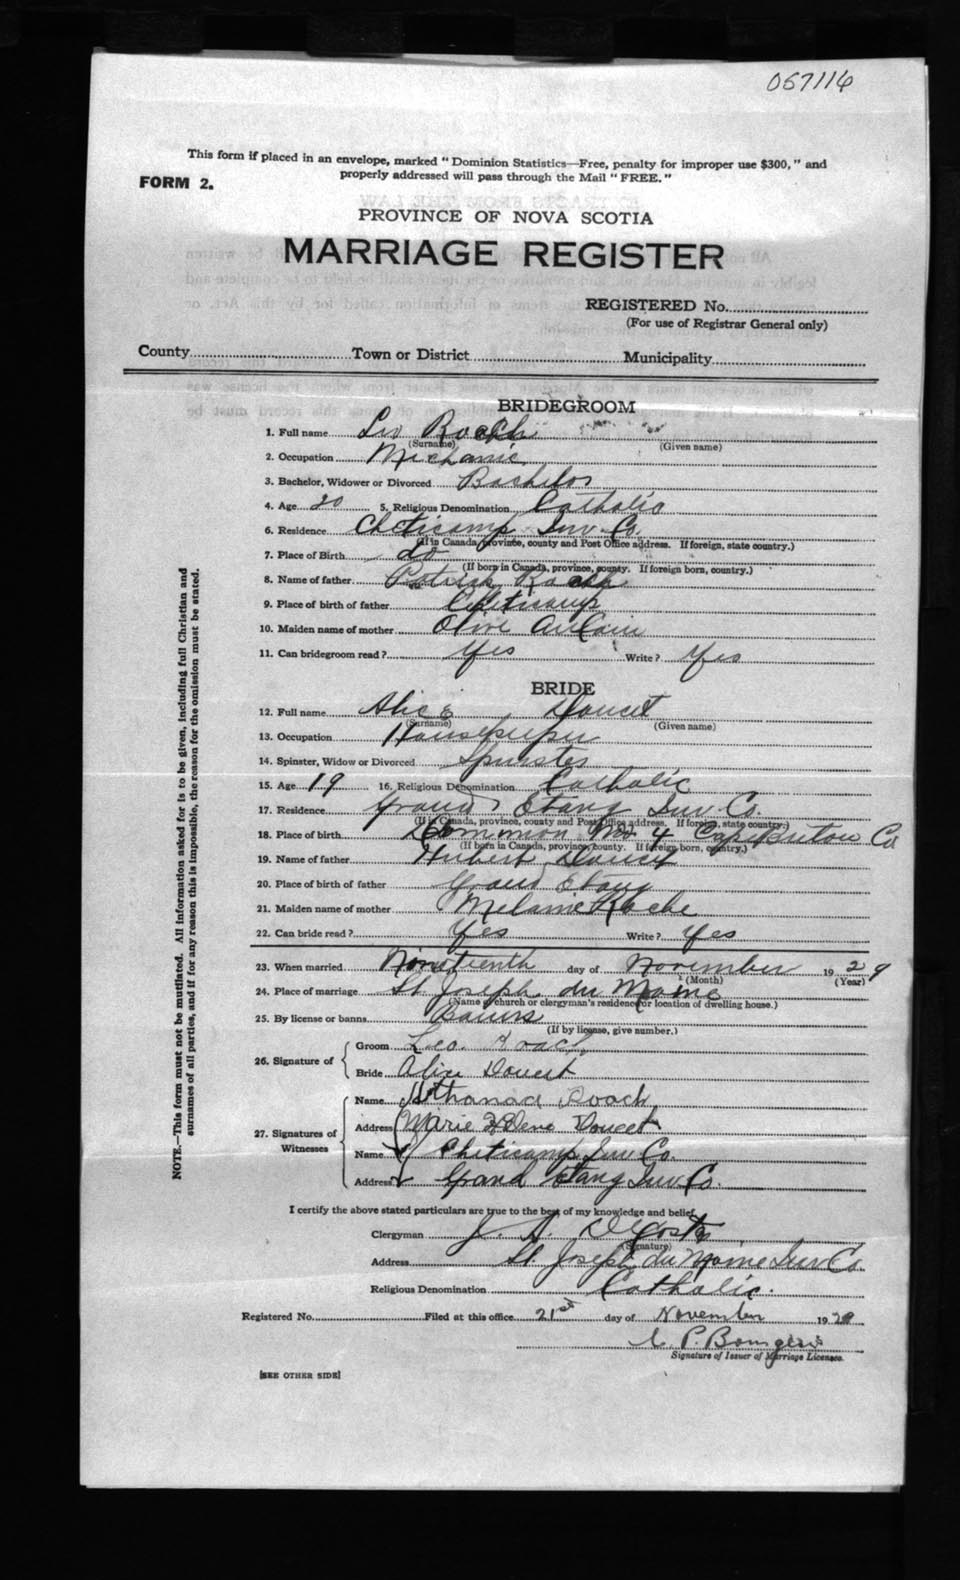 057114
This form if placed in an envelope, marked "Dominion Statistics—Free, penalty for improper use $300," and
properly addressed will pass through the Mail "FREE."
FORM 2.
PROVINCE OF NOVA SCOTIA
MARRIAGE REGISTER
REGISTERED No.
(For use of Registrar General only)
County Town or District Municipality
BRIDEGROOM
1. Full name Leo Roach
(Surname) (Given name)
2. Occupation Mechanic
3. Bachelor, Widower or Divorced Bachelor
4. Age 20 5. Religious Denomination Catholic
6. Residence Cheticamp Inv. Co.
(If in Canada, province, county and Post Office address. If foreign, state country.)
7. Place of Birth do
(If born in Canada, province, county. If foreign born, country.)
8. Name of father Patrick Roach
9. Place of birth of father Cheticamp
10. Maiden name of mother Olive AuCoin
11. Can bridegroom read? Yes Write? Yes
BRIDE
12. Full name Alice Doucet
(Surname) (Given name)
13. Occupation Housekeeper
14. Spinster, Widow or Divorced Spinster
15. Age 19 16. Religious Denomination Catholic
17. Residence Grand Etang Inv. Co.
(If in Canada, province, county and Post Office address. If foreign, state country.)
18. Place of birth Dominion No. 4 Cape Breton Co
(If born in Canada, province, county. If foreign born, country.)
19. Name of father Hubert Doucet
20. Place of birth of father Grand Etang
21. Maiden name of mother Melanie Roche
22. Can bride read? Yes Write? Yes
23. When married Nineteenth day of November 1929
(Month) (Year)
24. Place of marriage St. Joseph du Moine
(Name of church or clergyman's residence or location of dwelling house.)
25. By license or banns Banns
(If by license, give number.)
26. Signature of Groom Leo Roach
Bride Alice Doucet
27. Signatures of Witnesses
Name Roach
Address Marie Doucet
Name Cheticamp Inv. Co.
Address Grand Etang Inv. Co.
I certify the above stated particulars are true to the best of my knowledge and belief.
Clergyman J. A. DeCoste
(Signature)
Address St. Joseph du Moine Inv Co.
Religious Denomination Catholic.
Registered No. Filed at this office 21st day of November 1929
P. Bourgeois
Signature of Issuer of Marriage Licenses.
[SEE OTHER SIDE]
NOTE.—This form must not be mutilated. All information asked for is to be given, including full Christian and
surnames of all parties, and if for any reason this is impossible, the reason for the omission must be stated.